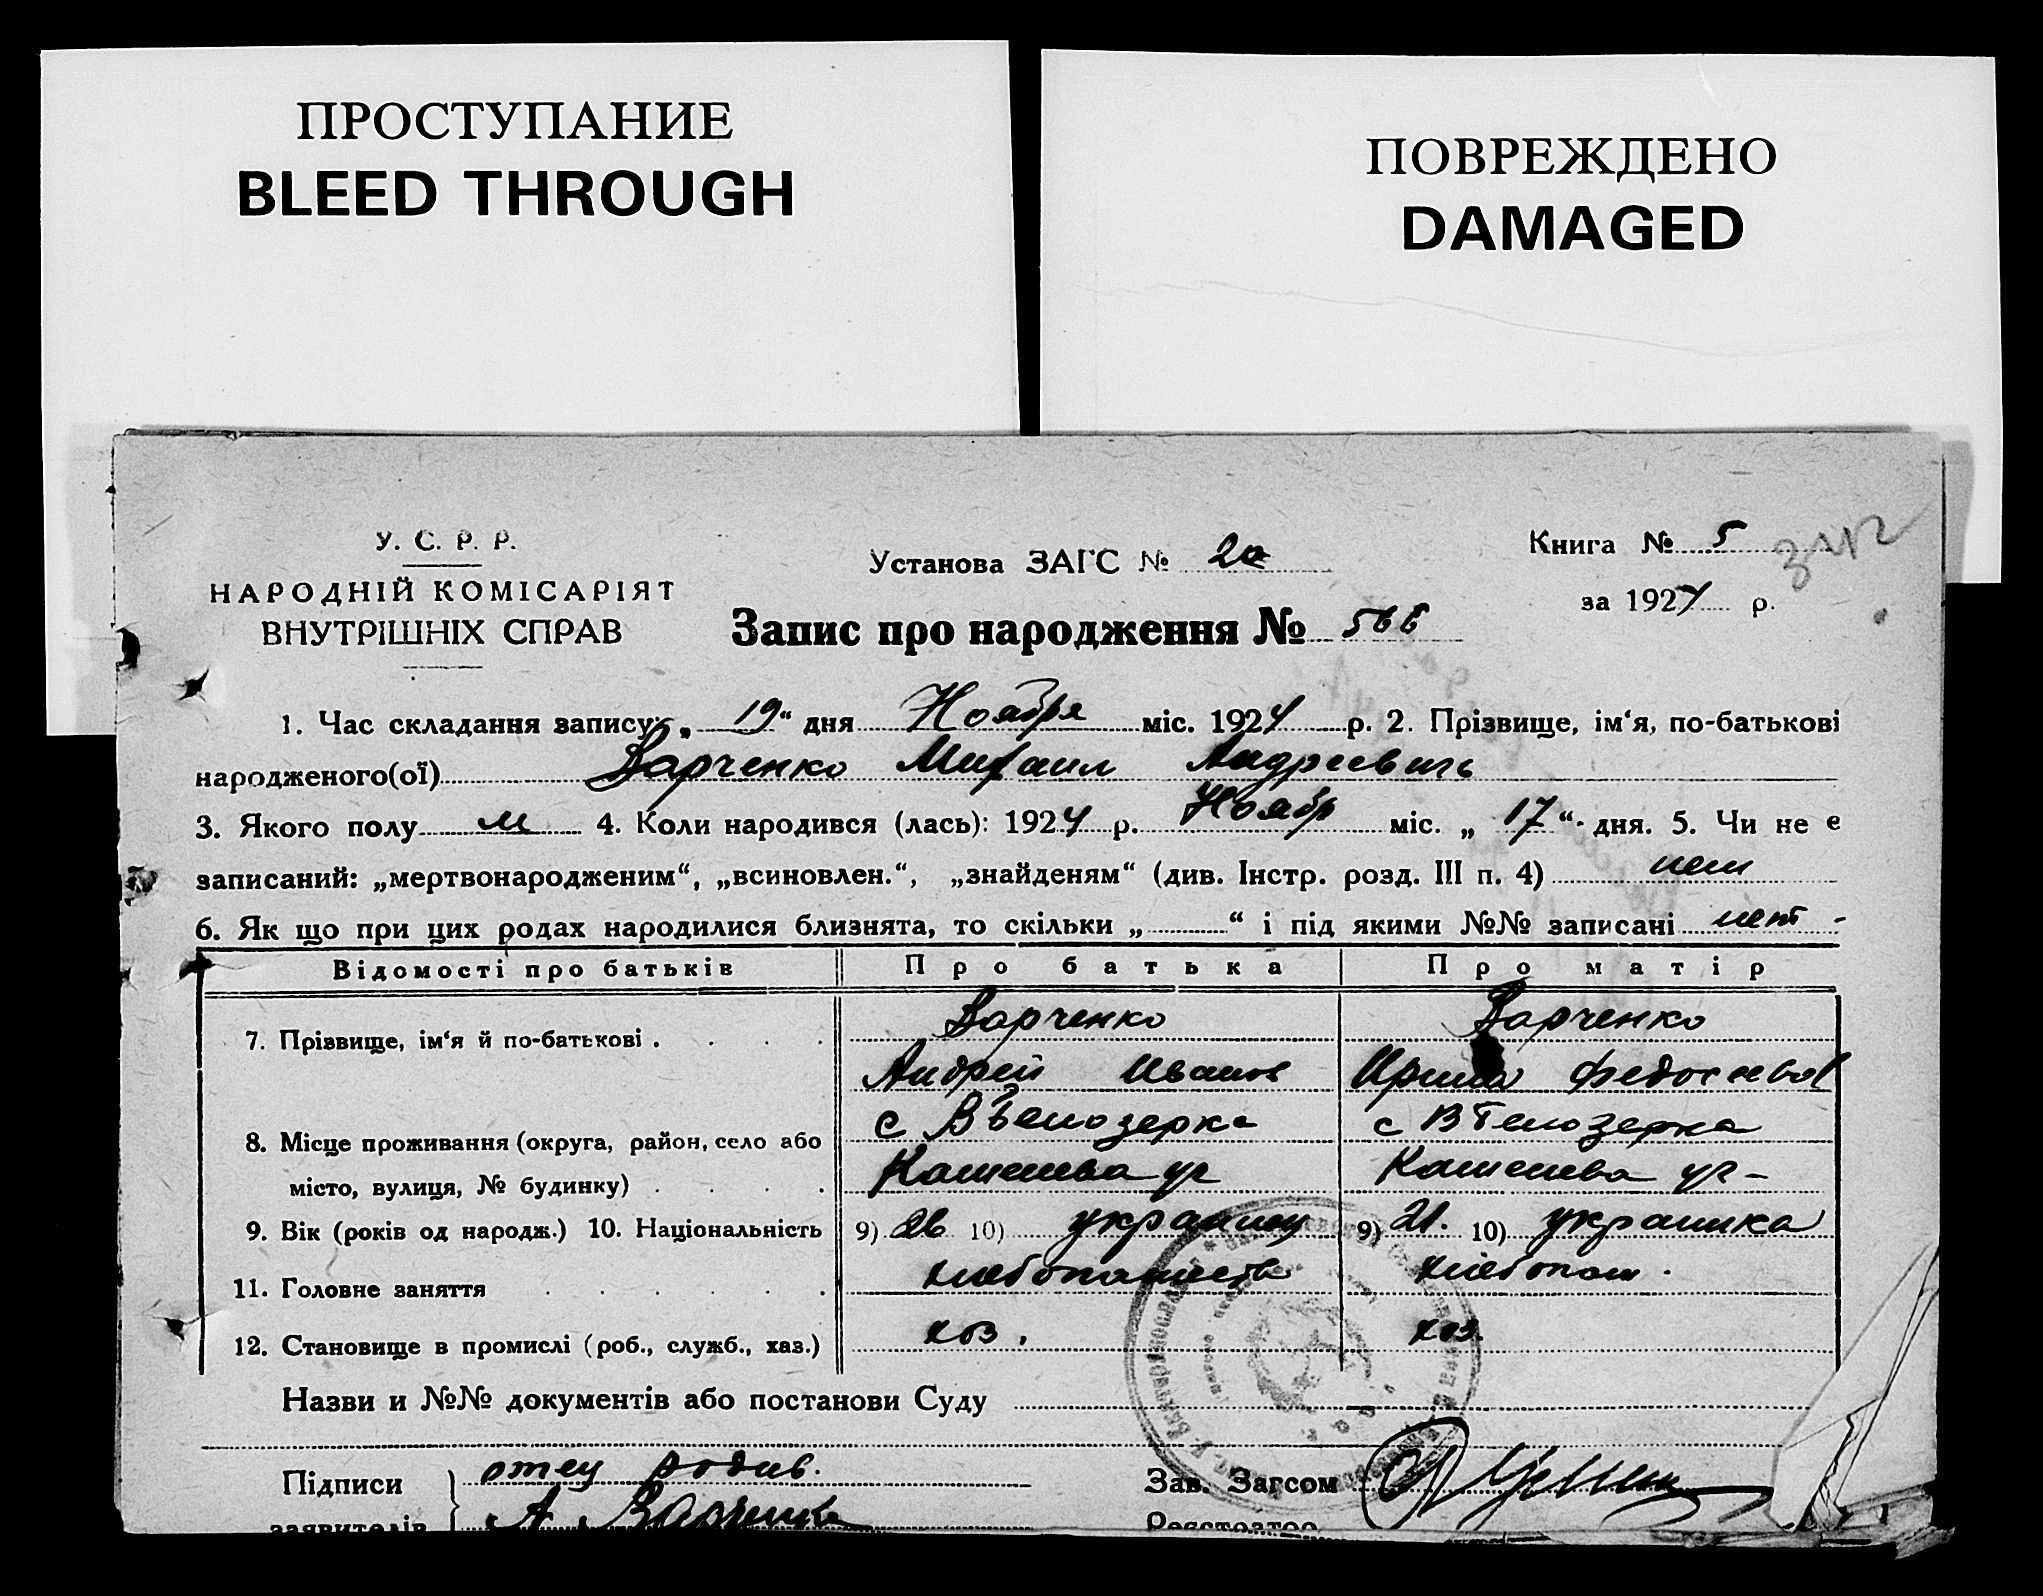 ПРОСТУПАНИЕ
BLEED THROUGH
ПОВРЕЖДЕНО
DAMAGED
У. С. Р. Р.
НАРОДНІЙ КОМІСАРІЯТ
ВНУТРІШНІХ СПРАВ
Установа ЗАГС №
Книга № 5
за 1924 р.
Запис про народження № 566
1. Час складання запису: „ 19 “ дня Ноября міс. 1924 р. 2. Прізвище, ім‘я, по-батькові
народженого(ої) Варченко Михаил Андреевич
3. Якого полу м 4. Коли народився (лась): 1924 р. Ноябр міс. „ 17 “ дня. 5. Чи не є
записаний: „мертвонародженим“, „всиновлен.“, „знайденям“ (див. Інстр. розд. III п. 4) нет
6. Як що при цих родах народилися близнята, то скільки „ “ і під якими №№ записані нет -
Відомості про батьків Про батька Про матір
7. Прізвище, ім‘я й по-батькові . Варченко Варченко
Андрей Иванов Ирина Федосеевна
8. Місце проживання (округа, район, село або с Вбелозерка с Вбелозерка
місто, вулиця, № будинку)
9. Вік (років од народж.) 10. Національність 9) 26 10) украинец 9) 21. 10) украинка
11. Головне заняття хлебопашество хлебопаш.
12. Становище в промислі (роб., служб., хаз.) хоз. хоз.
Назви и №№ документів або постанови Суду
Підписи отец родив. Зав. Загсом
заявителів А. Варченко Реєстратор